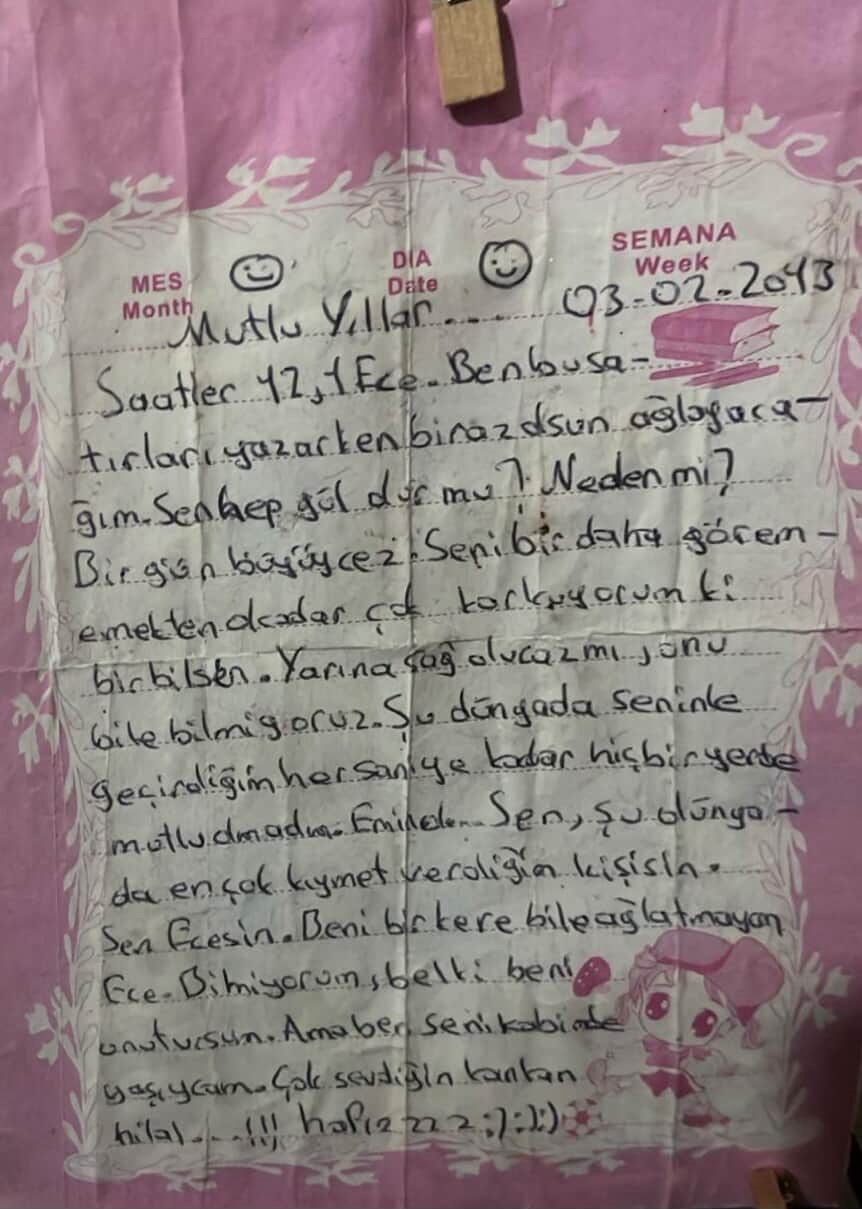 MES DIA SEMANA
Month Date Week
Mutlu Yıllar.... 03-02-2013
Saatler 12,1 Ece. Ben bu sa-
tırları yazarken biraz dsun ağlayaca-
ğım. Sen hep gül dur mu? Neden mi?
Bir gün büyüycez. Seni bir daha görem-
emekten okadar çok korkuyorum ki
bir bilsen. Yarına sağ olucazmı, onu
bile bilmiyoruz. Şu dünyada seninle
geçirdiğim her saniye kadar hiçbir yerde
mutlu olmadım. Sen, şu dünya-
da en çok kıymet verdiğim kişisin.
Sen Ecesin. Beni bir kere bile ağlatmayan
Ece. Bilmiyorum, belki beni
unutursun. Ama ben seni kalbimde
yaşıycam. Çok sevdiğin kankan
hilal....!!! :):):)